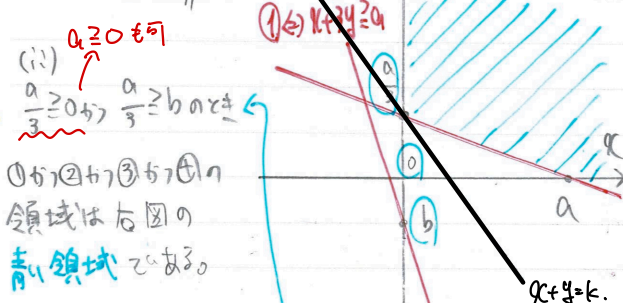 a≧0 も可
(ii)
a/3≧0かつ a/3≧bのとき
①かつ②かつ③かつ④の
領域は右図の
青い領域である。
①⇔x+3y≧a
a/3
0
x
a
b
x+y=k.